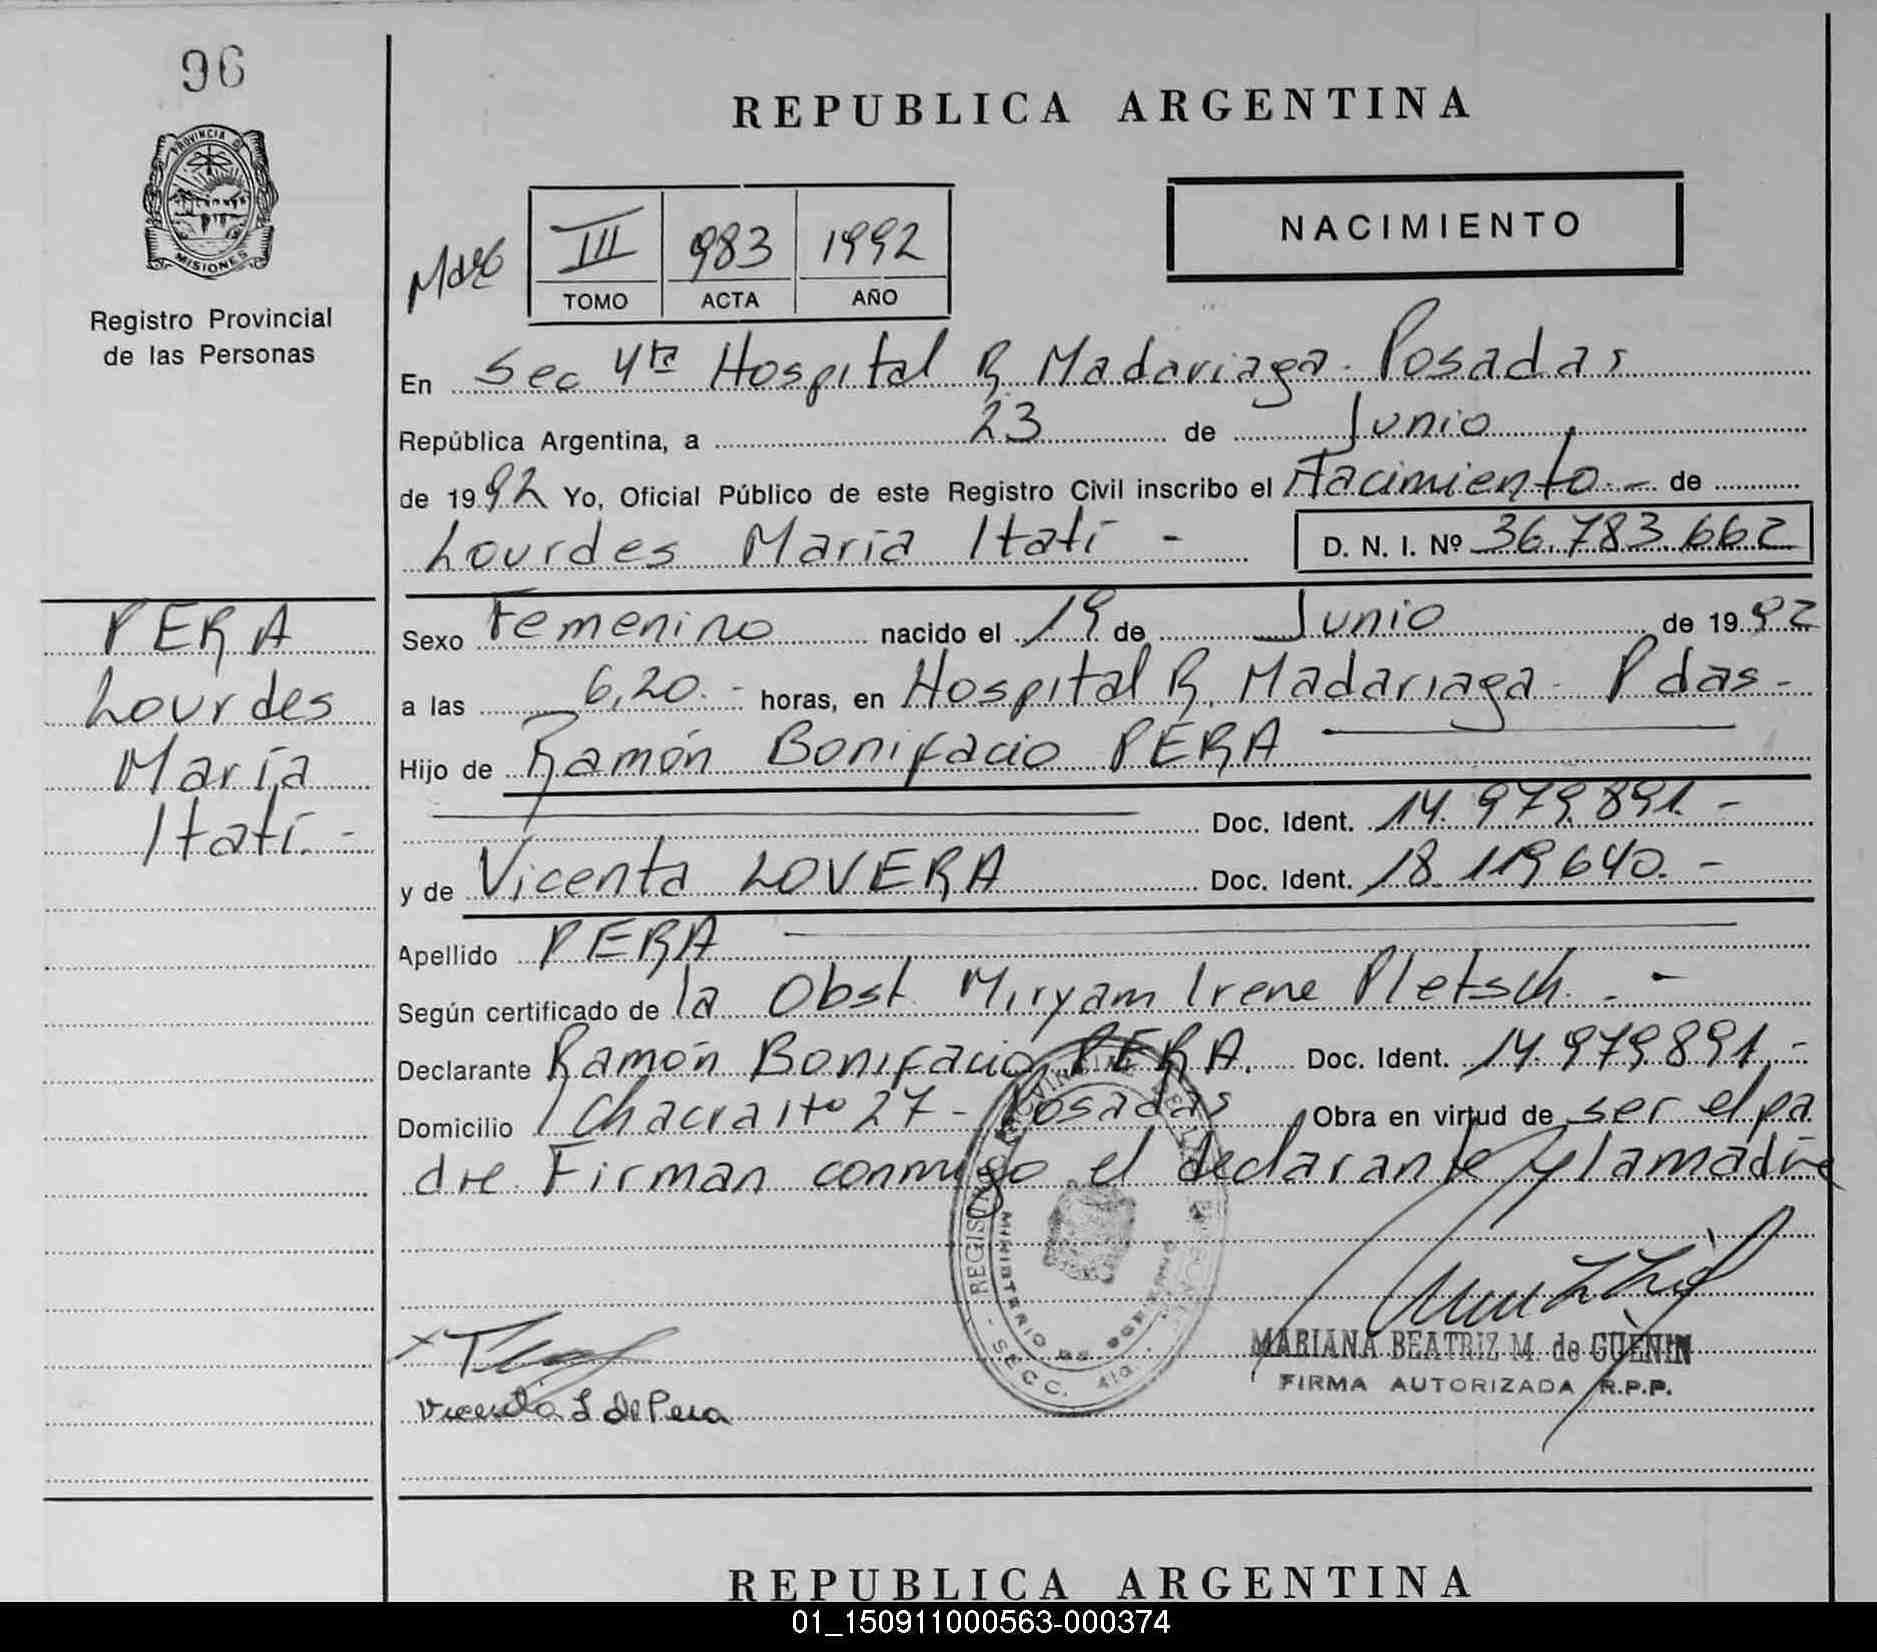 96
PROVINCIA DE
MISIONES
Registro Provincial
de las Personas
PERA
Lourdes
María
Itatí.-
REPUBLICA ARGENTINA
III 983 1992
TOMO ACTA AÑO
NACIMIENTO
En Sec 4ta Hospital R. Madariaga. Posadas
República Argentina, a 23 de Junio
de 1992 Yo, Oficial Público de este Registro Civil inscribo el Nacimiento.- de
Lourdes María Itatí -
D. N. I. Nº 36.783.662
Sexo Femenino nacido el 19 de Junio de 1992
a las 6,20.- horas, en Hospital R. Madariaga - Pdas-
Hijo de Ramón Bonifacio PERA
Doc. Ident. 14.979.891.-
y de Vicenta LOVERA Doc. Ident. 18.119.640.-
Apellido PERA
Según certificado de la Obst. Miryam Irene Pletsch.-
Declarante Ramón Bonifacio PERA. Doc. Ident. 14.979.891.-
Domicilio Chacra 27 - Posadas Obra en virtud de ser el pa
dre. Firman conmigo el declarante y la madre
REGISTRO PROVINCIAL DE LAS PERSONAS
MINISTERIO DE GOBIERNO
- SECC. 4ta. -
Vicenta L de Pera
MARIANA BEATRIZ M. de GUENIN
FIRMA AUTORIZADA R.P.P.
REPUBLICA ARGENTINA
01_150911000563-000374